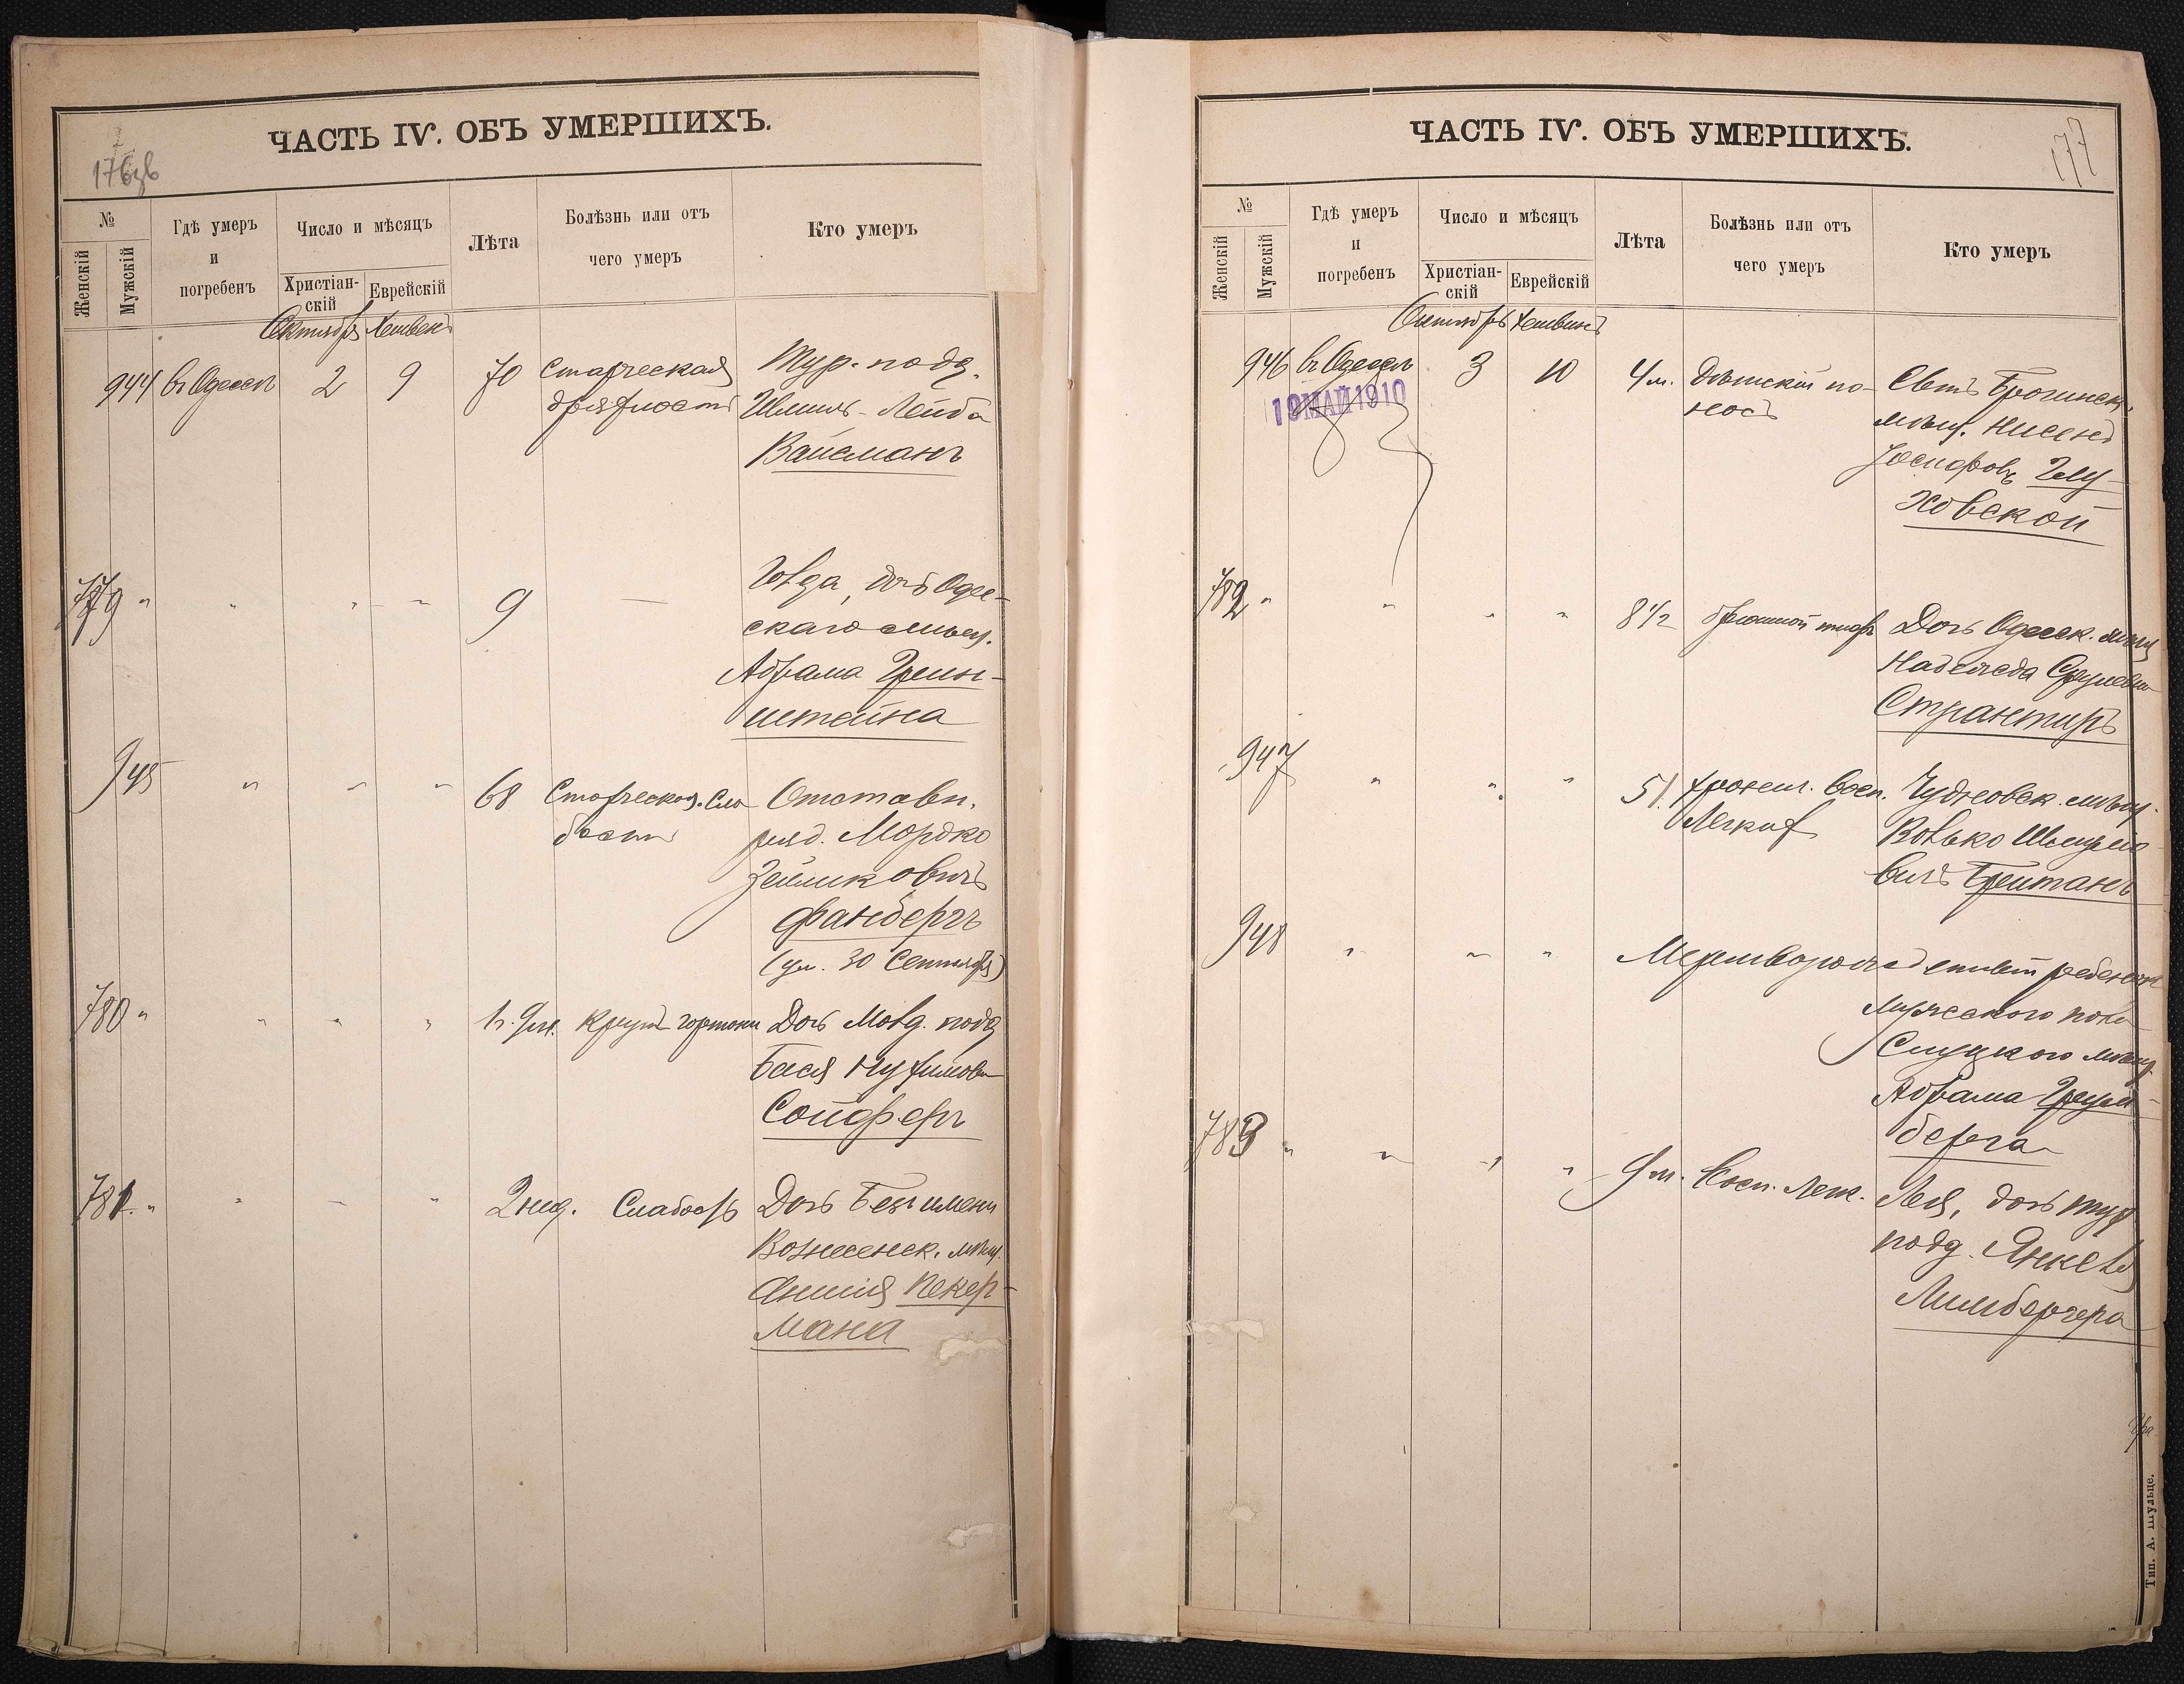 ЧАСТЬ IV. ОБЪ УМЕРШИХЪ.
176
№
Женскій
Мужскій
Гдѣ умеръ
и
погребенъ
Число и мѣсяцъ
Христіан-
скій
Еврейскій
Лѣта
Болѣзнь или отъ
чего умеръ
Кто умеръ
Октября Хешвенъ
944 въ Одессѣ 2 9 70 Старческая Тур. подд.
дряхлость Шмиль-Лейба
Вайсманъ
779 " " " " 9 — Голда, дочь Одес-
скаго мѣщ.
Абрама Грин-
штейна
945 " " " 68 Старческая сла- Отставн.
бость ряд. Мордко
Зейликовичъ
Фанбергъ
(ум. 30 Сентября)
780 " " " " 1г. 9м. крупъ гортани Дочь Молд. подд.
Бася Нухимова
Сойферъ
781 " " " " 2 нед. Слабость Дочь Безъ имени
Вознесенск. мѣщ.
Аншия Пекер-
мана
ЧАСТЬ IV. ОБЪ УМЕРШИХЪ.
177
№
Женскій
Мужскій
Гдѣ умеръ
и
погребенъ
Число и мѣсяцъ
Христіан-
скій
Еврейскій
Лѣта
Болѣзнь или отъ
чего умеръ
Кто умеръ
Октябрь Хешвинъ
946 въ Одессѣ 3 10 4 м. Дѣтскій по-
носъ
19 МАЙ 1910
мѣщ. Нисенъ
Іосифовъ Глу-
ховской
782 " " " " 8 1/2 брюшной тифъ Дочь Одесск. мѣщ
Надежда Срулева
Странтиръ
947 " " " 51. хронич. восп. Чудновск. мѣщ.
Легких Волько
вичъ Брейтманъ
948 " " " Мертворожденный ребенокъ
мужескаго пола
Слуцкого мѣщ.
Абрама Грин-
берга
783 " " " " 9 м. Восп. лег. Лея, дочь тур
подд. Янкеля
Лимбергера
Тип. А. Шульце.